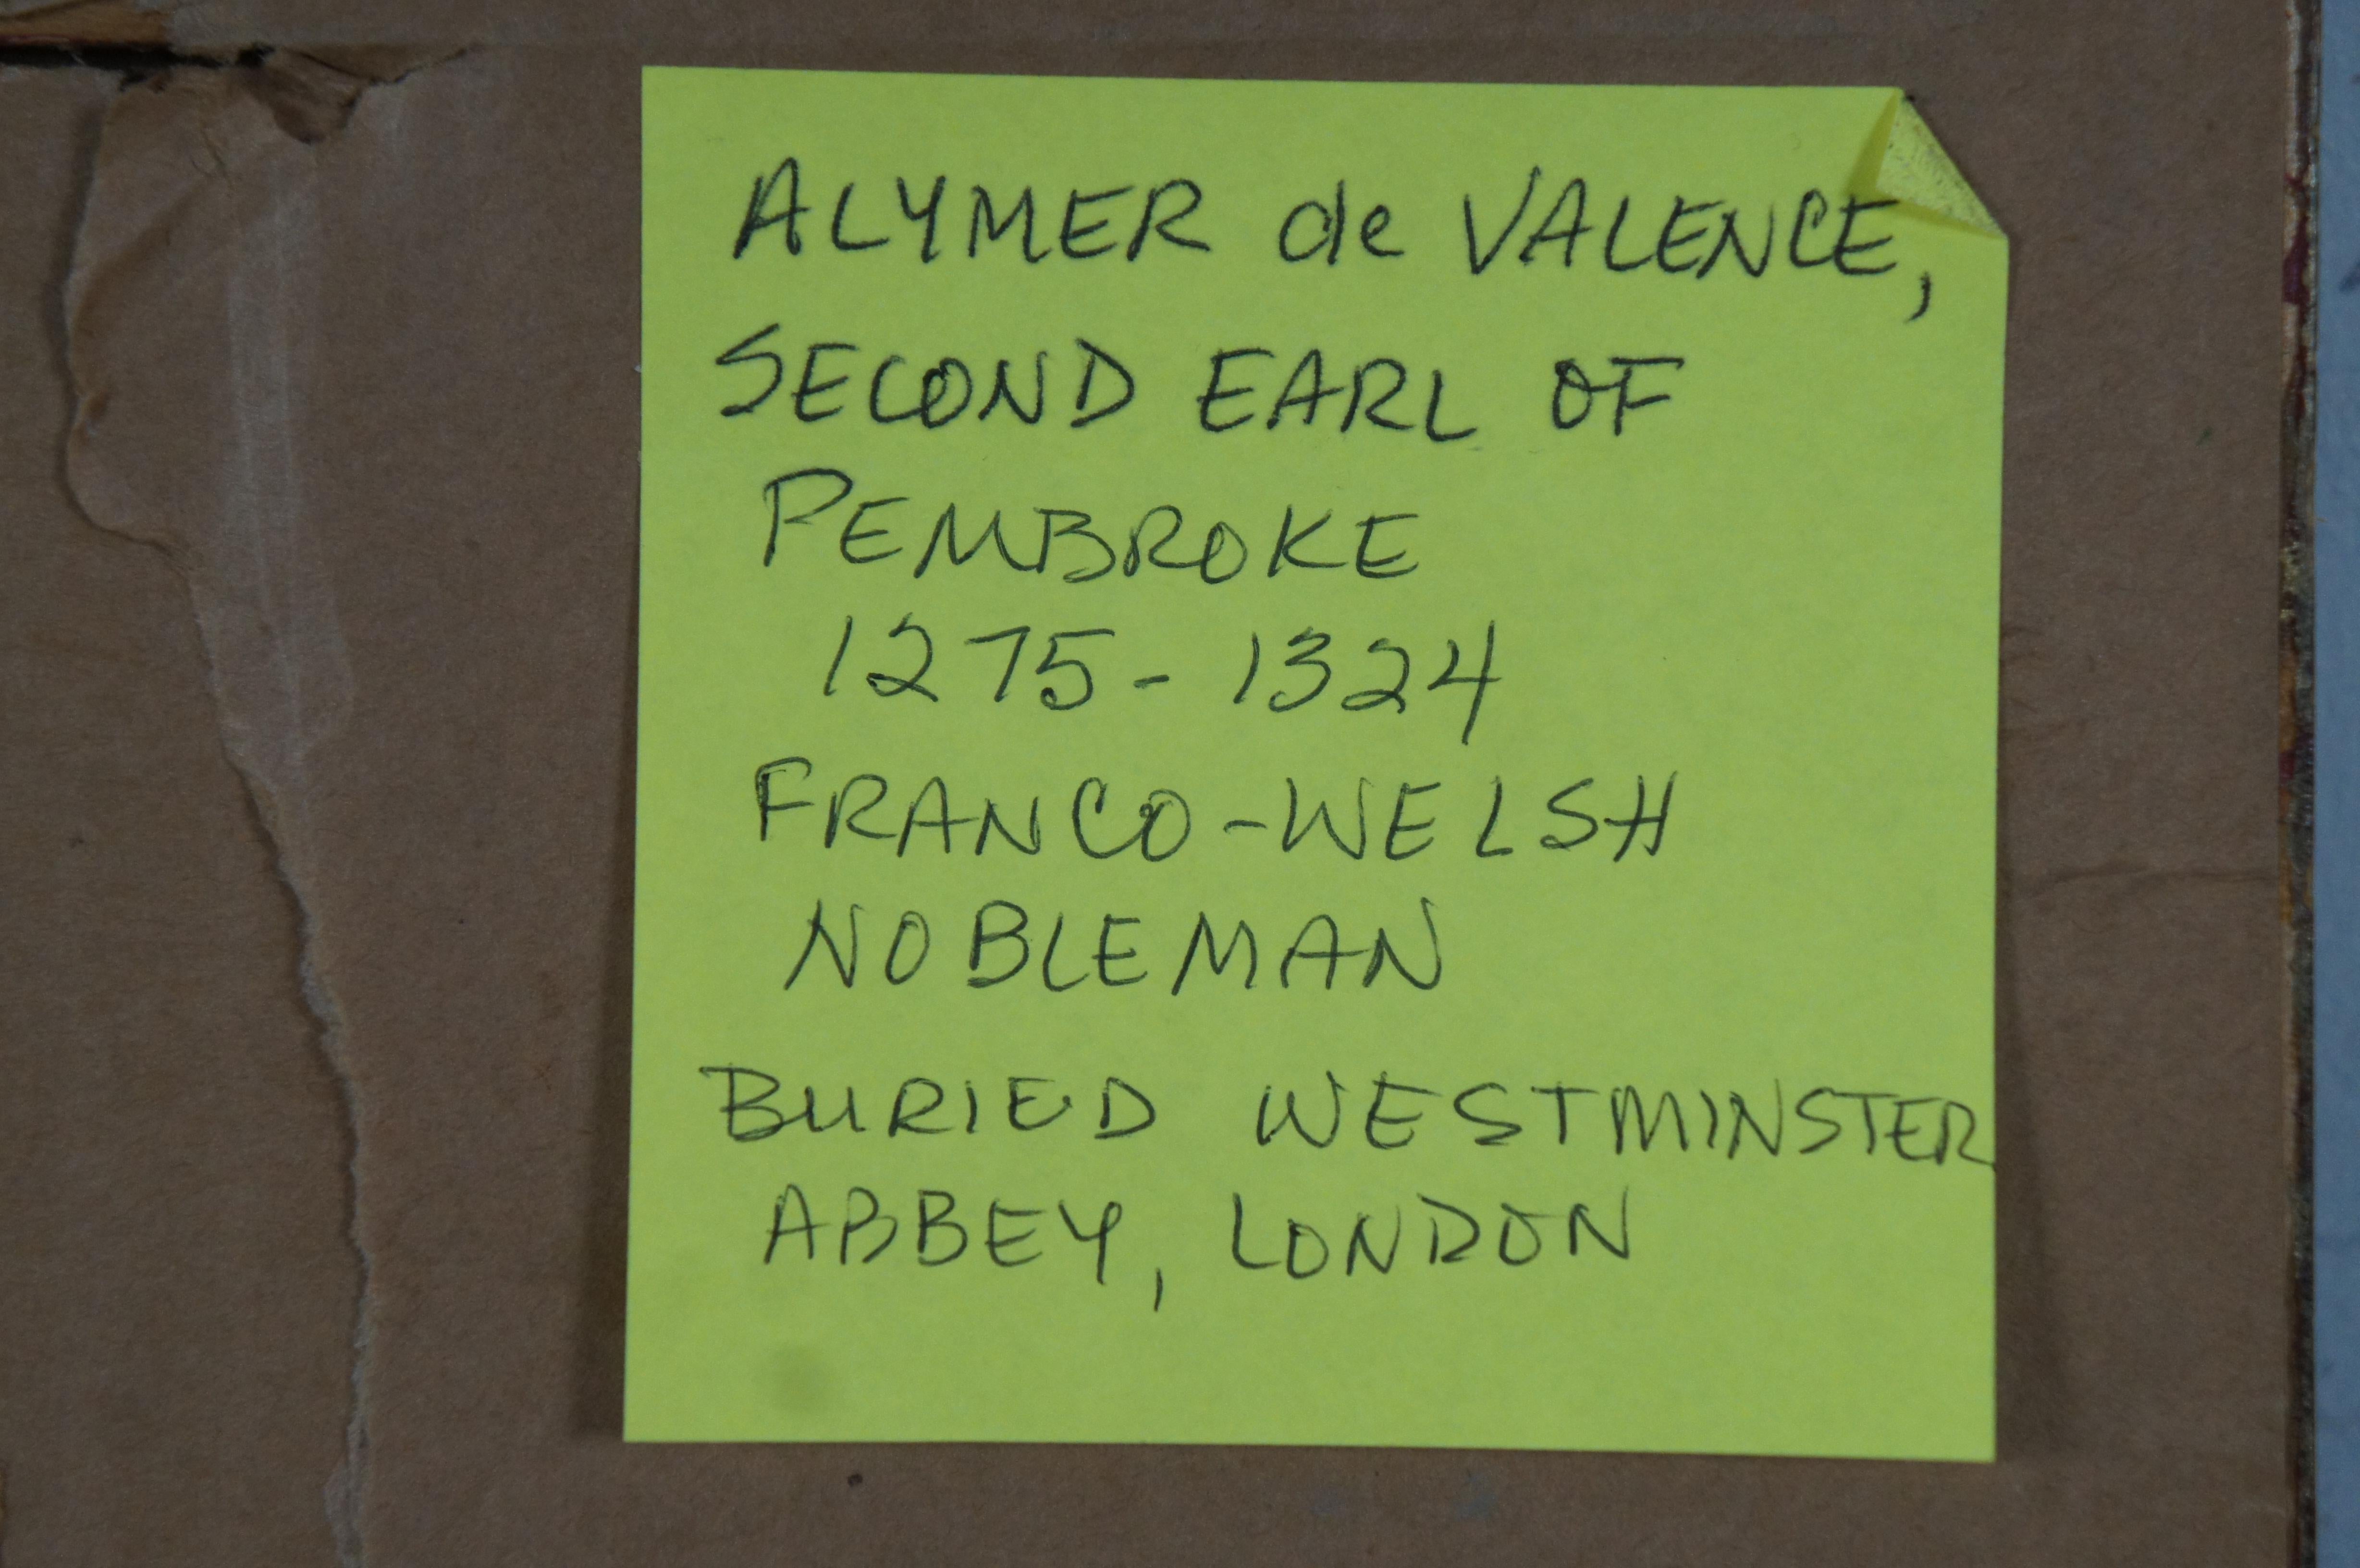 ALYMER de VALENCE,
SECOND EARL OF
PEMBROKE
1275-1324
FRANCO-WELSH
NOBLEMAN
BURIED WESTMINSTER
ABBEY, LONDON